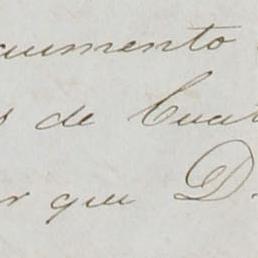 aumento
s de Cuat
or que D.